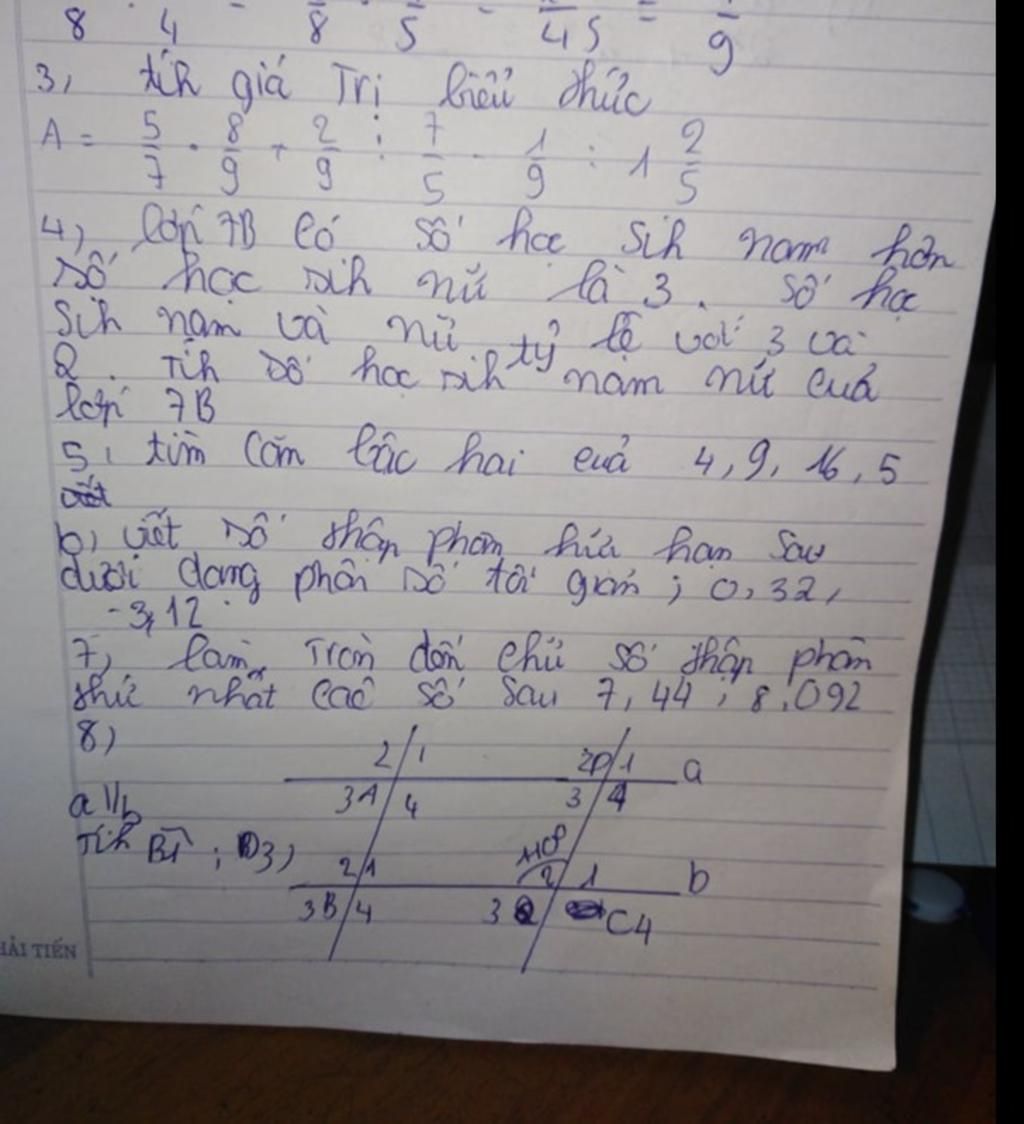 8 4 8 5 45 = 9
3, tính giá Trị biểu thức
A = 5/7 . 8/9 + 2/9 : 7/5 - 1/9 : 1 2/5
4) lớp 7B có số học sih nam hơn
số học sih nữ là 3. Số học
Sih nam và nữ tỷ lệ với 3 và
2. Tíh số học sih nam nữ của
lớp 7B
5, tìm căn bậc hai của 4, 9, 16, 5
b) viết số thập phân hữu hạn sau
dưới dạng phân số tối giản; 0,32,
-3,12
7, làm tròn đến chữ số thập phân
thứ nhất các số sau 7,44; 8,092
8)
2 1 2D 1 a
a // b 3A 4 3 4
Tíh B1; D3)
2 1 2 1 b
3B 4 3 C4
HẢI TIẾN